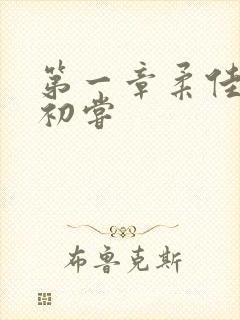 第一章柔佳
初嘗
布鲁克斯